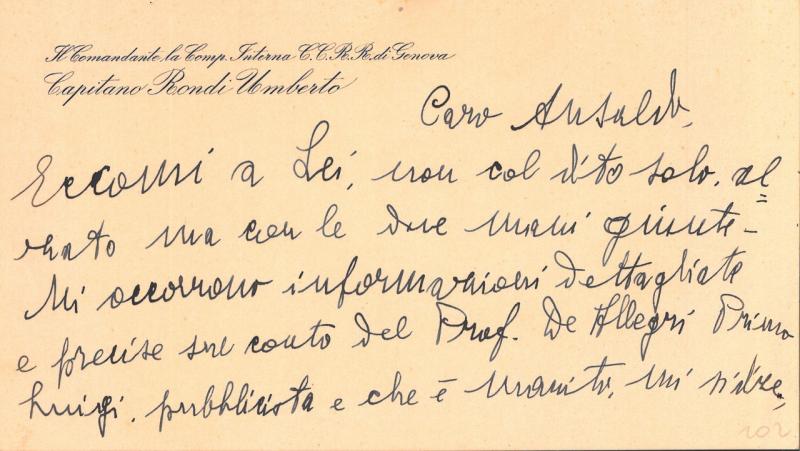 Il Comandante la Comp. Interna C.C.R.R. di Genova
Capitano Rondi Umberto
Caro Ansaldo,
Eccomi a Lei, non col dito solo, al
zato ma con le dove mani giunte -
Mi occorrono informazioni dettagliate
e precise sul conto del Prof. De Allegri Primo
Luigi, pubblicista e che è marito, mi si dice,
102